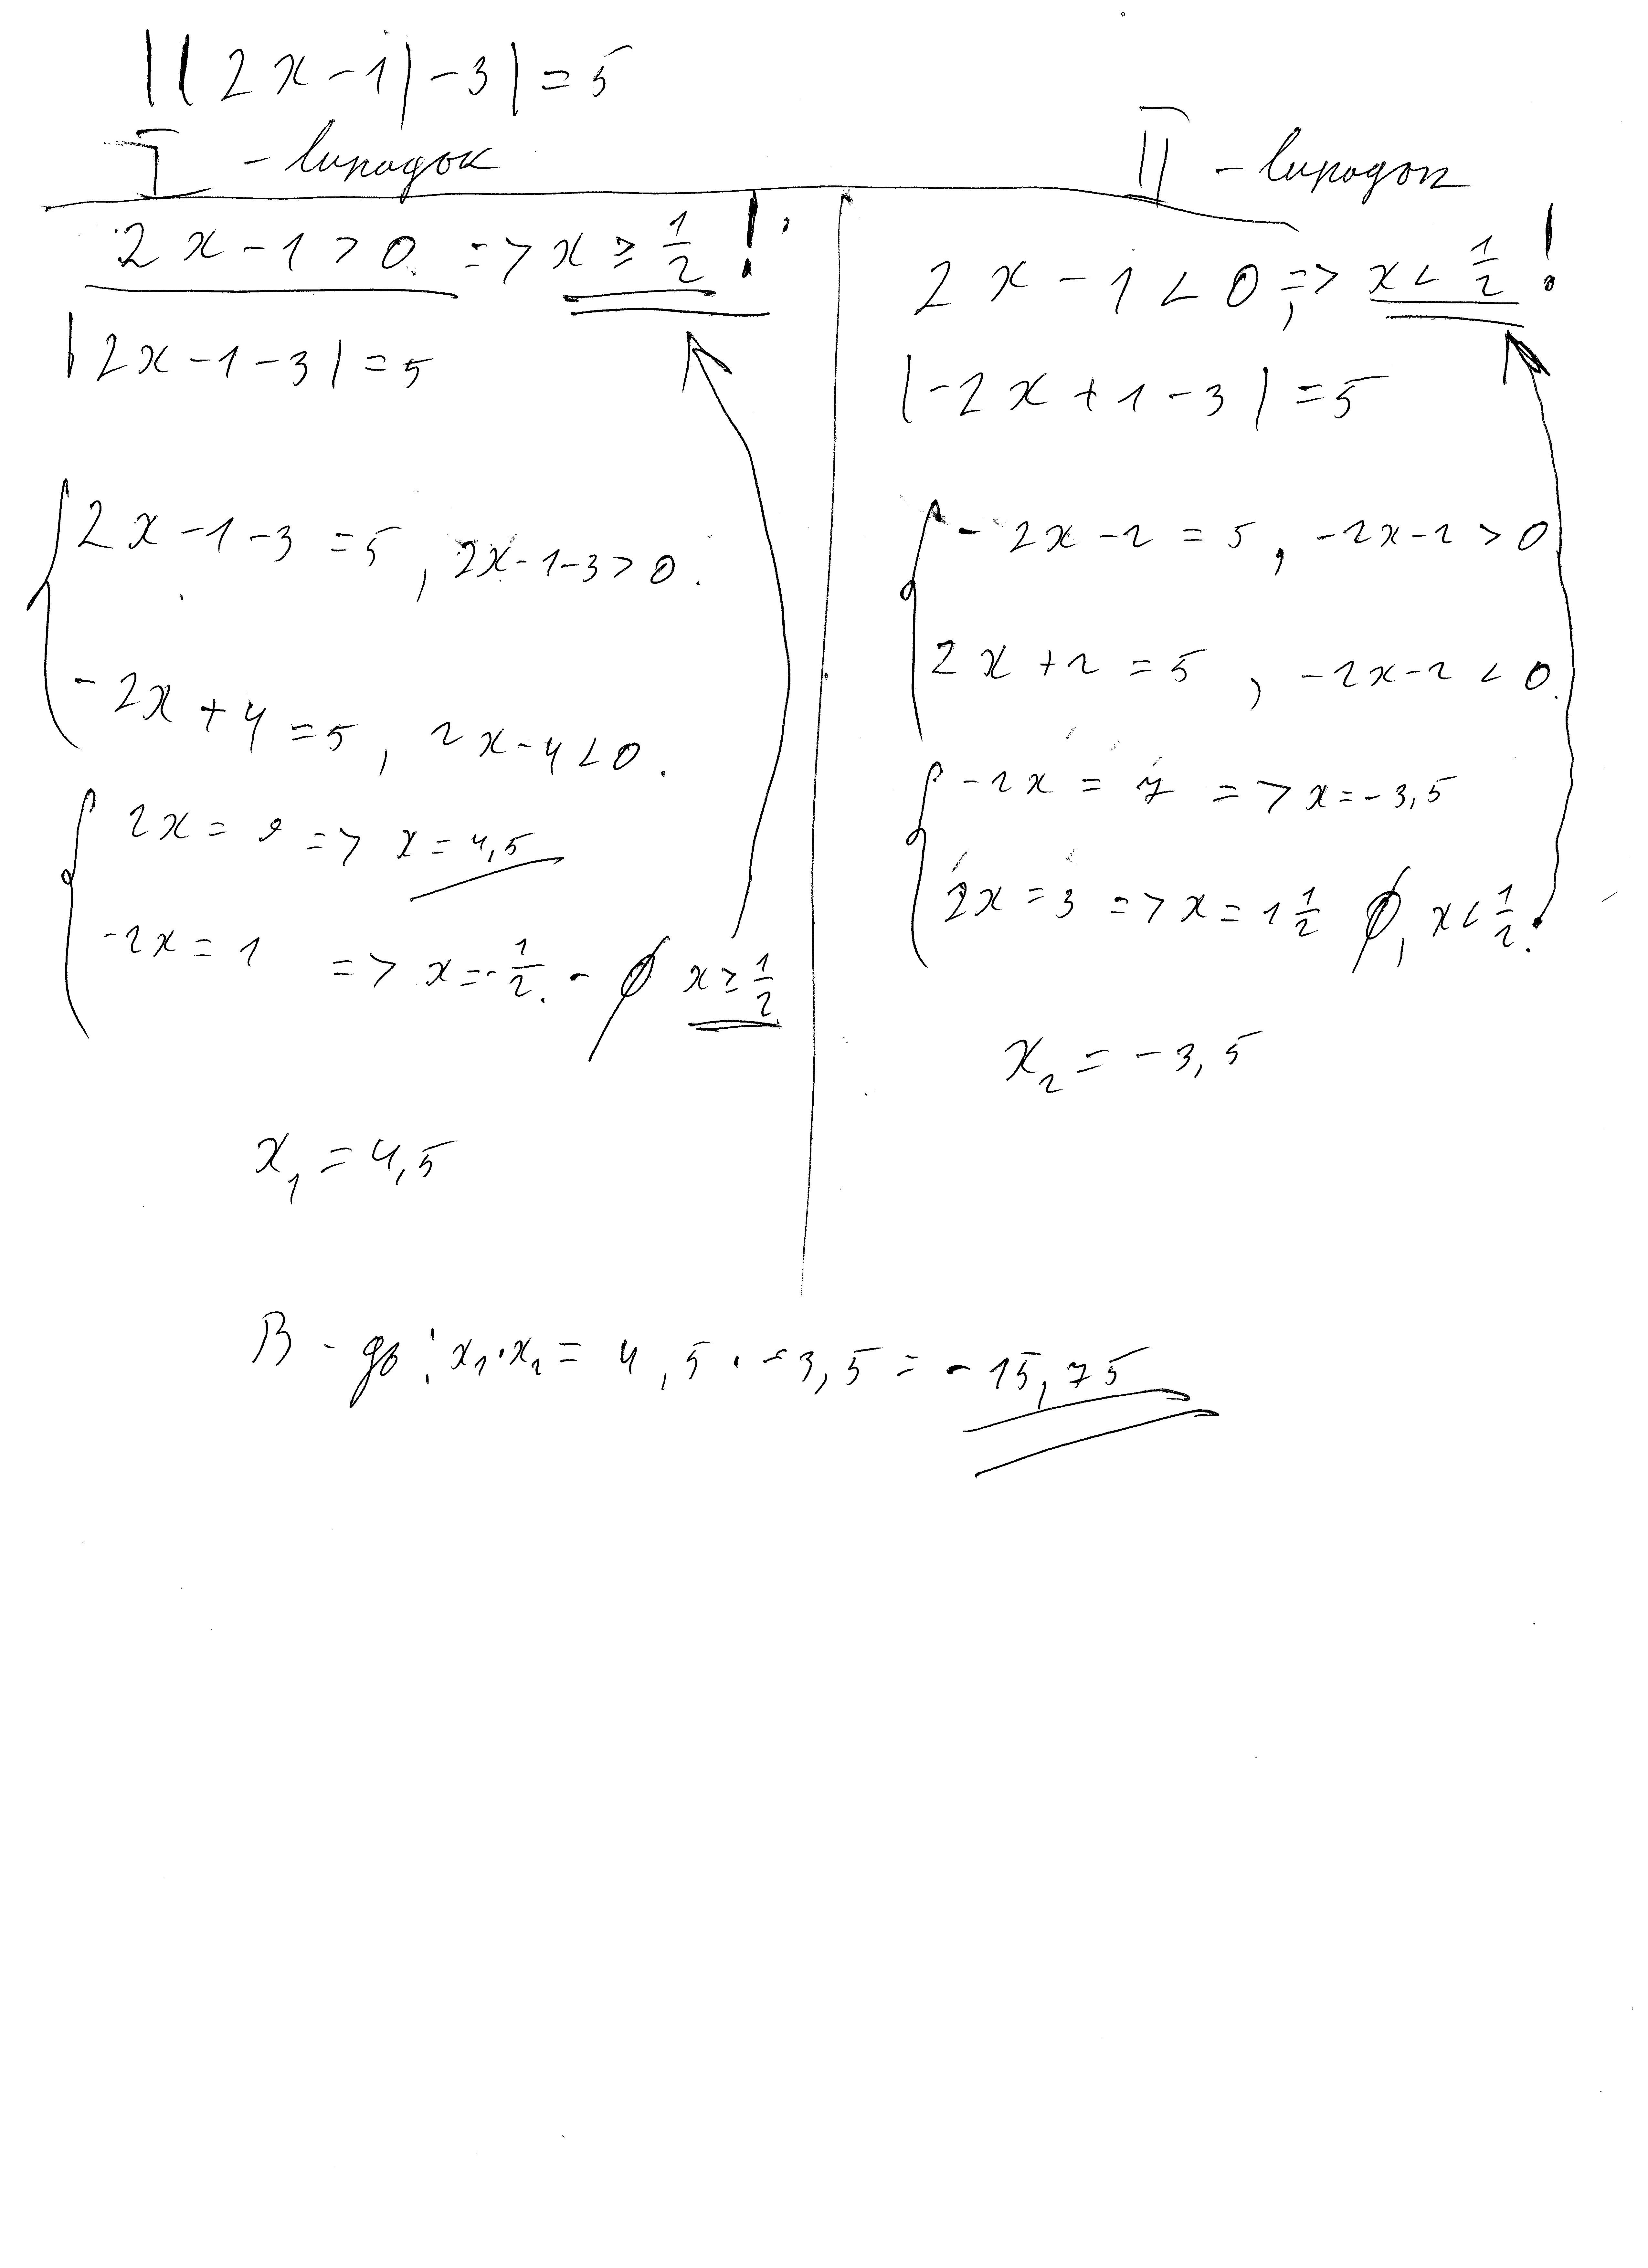 ||2x-1|-3|=5
I - випадок
2x-1>0. => x≥1/2 !
|2x-1-3|=5
2x-1-3=5, 2x-1-3>0.
-2x+4=5, 2x-4<0.
2x=9 => x=4,5
-2x=1 => x=-1/2. - ∅ x≥1/2
x₁=4,5
II - випадок
2x-1<0; => x<1/2 !
|-2x+1-3|=5
-2x-2=5, -2x-2>0
2x+2=5, -2x-2<0.
-2x=7 => x=-3,5
2x=3 => x=1 1/2 ∅, x<1/2.
x₂=-3,5
В-дь: x₁·x₂=4,5·-3,5=-15,75